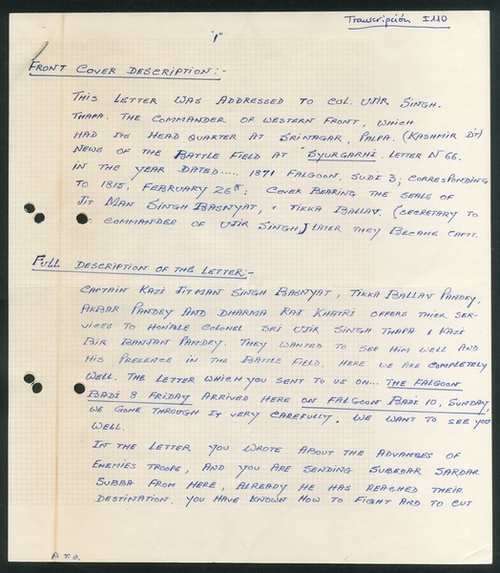 Transcripción I110
"1"
FRONT COVER DESCRIPTION:-
THIS LETTER WAS ADDRESSED TO COL. UJIR SINGH-
THAPA. THE COMMANDER OF WESTERN FRONT, WHICH
HAD ITS HEAD QUARTER AT SRINAGAR, PALPA. (KASHMIR DT)
NEWS OF THE BATTLE FIELD AT SYURGARHI. LETTER Nº 66.
IN THE YEAR DATED..... 1871 FALGOON. SUDI 3; CORRESPONDING
TO 1815, FEBRUARY 26TH: COVER BEARING THE SEALS OF
JIT MAN SINGH BASNYAT, & TIKKA BALLAV. (SECRETARY TO
COMMANDER OF UJIR SINGH.) LATER THEY BECAME CAPIT.
FULL DESCRIPTION OF THE LETTER:-
CAPTAIN KAZI JITMAN SINGH BASNYAT, TIKKA BALLAV PANDEY,
AKBAR PANDEY AND DHARMA RAJ KHATRI OFFERS THIER SER-
VICES TO HON'ABLE COLONEL SRI UJIR SINGH THAPA & KAZI
BIR BANJAN PANDEY. THEY WANTED TO SEE HIM WELL AND
HIS PRESENCE IN THE BATTLE FIELD. HERE WE ARE COMPLETELY
WELL. THE LETTER WHICH YOU SENT TO US ON... THE FALGOON
BADI 8 FRIDAY ARRIVED HERE ON FALGOON BADI 10, SUNDAY,
WE GONE THROUGH IT VERY CAREFULLY. WE WANT TO SEE YOU
WELL.
IN THE LETTER YOU WROTE ABOUT THE ADVANCES OF
ENEMIES TROOPS, AND YOU ARE SENDING SUBEDAR SARDAR
SUBBA FROM HERE, ALREADY HE HAS REACHED THEIR
DESTINATION. YOU HAVE KNOWN HOW TO FIGHT AND TO CUT
P.T.O.